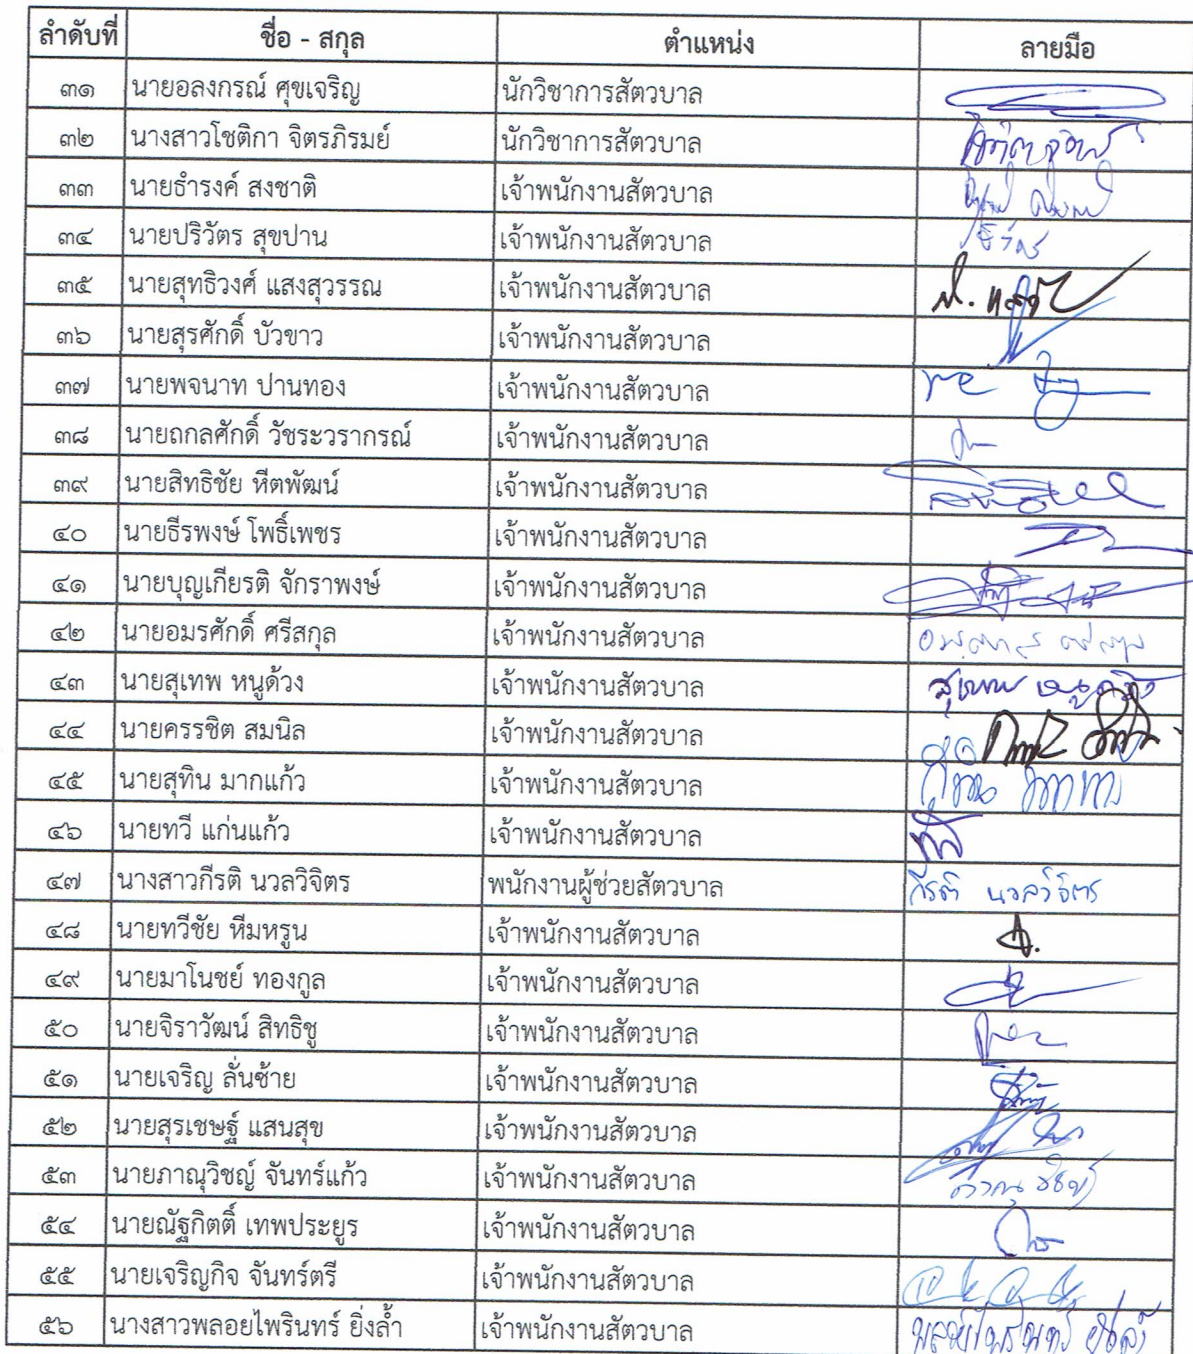 ลำดับที่ ชื่อ - สกุล ตำแหน่ง ลายมือ
๓๑ นายอลงกรณ์ ศุขเจริญ นักวิชาการสัตวบาล
๓๒ นางสาวโชติกา จิตรภิรมย์ นักวิชาการสัตวบาล
๓๓ นายธำรงค์ สงชาติ เจ้าพนักงานสัตวบาล
๓๔ นายปริวัตร สุขปาน เจ้าพนักงานสัตวบาล
๓๕ นายสุทธิวงศ์ แสงสุวรรณ เจ้าพนักงานสัตวบาล
๓๖ นายสุรศักดิ์ บัวขาว เจ้าพนักงานสัตวบาล
๓๗ นายพจนาท ปานทอง เจ้าพนักงานสัตวบาล
๓๘ นายถกลศักดิ์ วัชระวรากรณ์ เจ้าพนักงานสัตวบาล
๓๙ นายสิทธิชัย หีตพัฒน์ เจ้าพนักงานสัตวบาล
๔๐ นายธีรพงษ์ โพธิ์เพชร เจ้าพนักงานสัตวบาล
๔๑ นายบุญเกียรติ จักราพงษ์ เจ้าพนักงานสัตวบาล
๔๒ นายอมรศักดิ์ ศรีสกุล เจ้าพนักงานสัตวบาล
๔๓ นายสุเทพ หนูด้วง เจ้าพนักงานสัตวบาล สุเทพ หนูด้วง
๔๔ นายครรชิต สมนิล เจ้าพนักงานสัตวบาล
๔๕ นายสุทิน มากแก้ว เจ้าพนักงานสัตวบาล
๔๖ นายทวี แก่นแก้ว เจ้าพนักงานสัตวบาล
๔๗ นางสาวกีรติ นวลวิจิตร พนักงานผู้ช่วยสัตวบาล กีรติ นวลวิจิตร
๔๘ นายทวีชัย หีมหรูน เจ้าพนักงานสัตวบาล
๔๙ นายมาโนชย์ ทองกูล เจ้าพนักงานสัตวบาล
๕๐ นายจิราวัฒน์ สิทธิชู เจ้าพนักงานสัตวบาล
๕๑ นายเจริญ ลั่นซ้าย เจ้าพนักงานสัตวบาล
๕๒ นายสุรเชษฐ์ แสนสุข เจ้าพนักงานสัตวบาล
๕๓ นายภาณุวิชญ์ จันทร์แก้ว เจ้าพนักงานสัตวบาล
๕๔ นายณัฐกิตติ์ เทพประยูร เจ้าพนักงานสัตวบาล
๕๕ นายเจริญกิจ จันทร์ตรี เจ้าพนักงานสัตวบาล
๕๖ นางสาวพลอยไพรินทร์ ยิ่งล้ำ เจ้าพนักงานสัตวบาล พลอยไพรินทร์ ยิ่งล้ำ